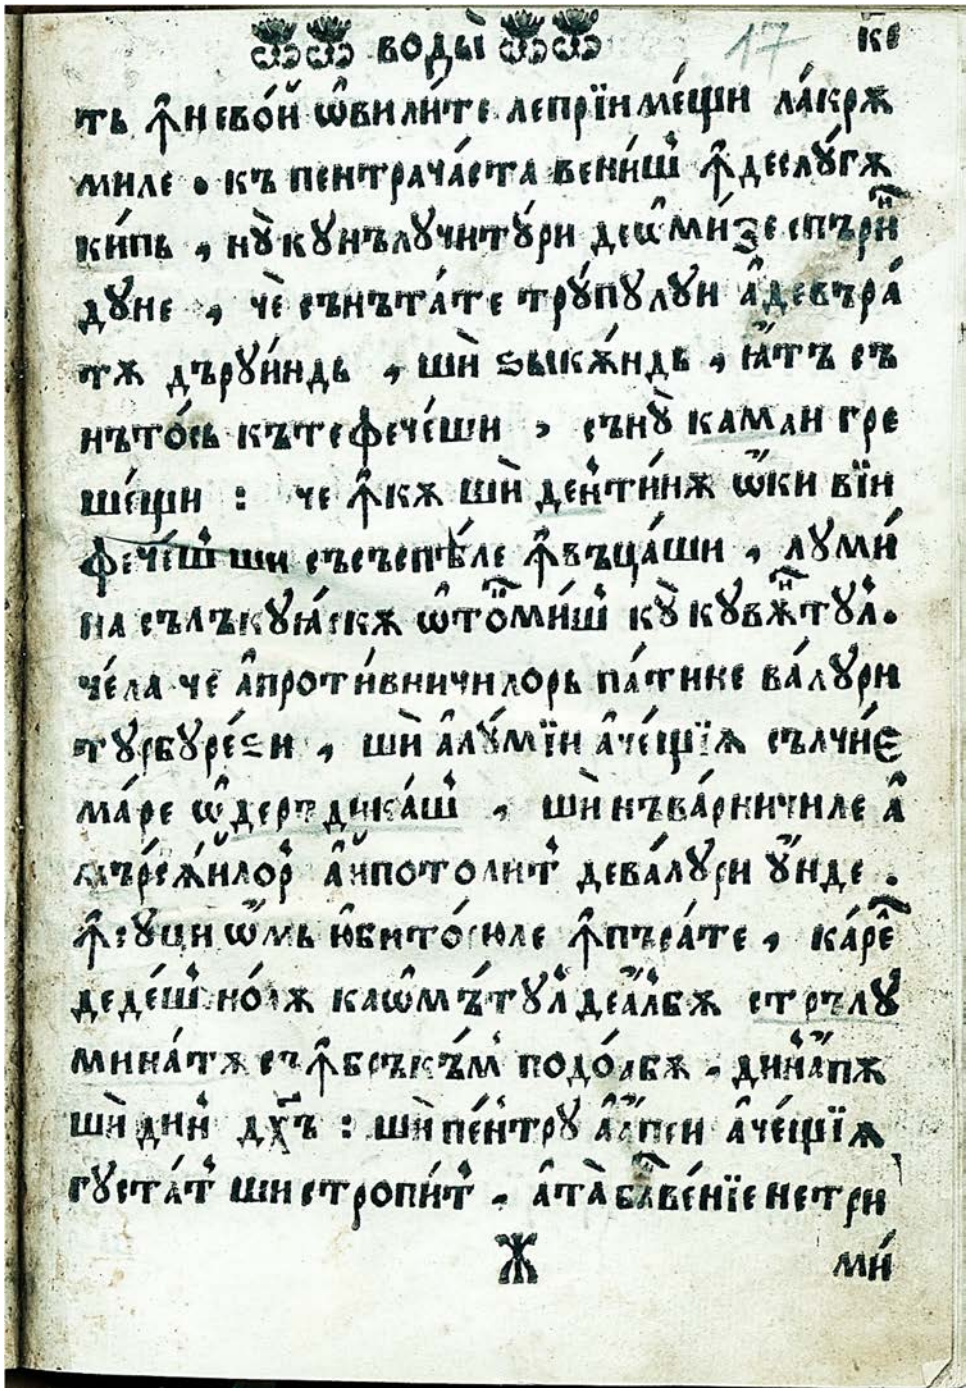 воды҆̀ 17 к҃е
ть ꙟ҆нево́й ѡ҆вили́те лепрїимⸯе́щи ла́крѫ
миле . къ пентрача́ста вени́ш꙽ ꙟ҆деслꙋ́гѫ
ки́пь , нꙋ̀ кꙋнълꙋчитꙋ́ри деѡ҆ми́зе спъри҆ⷩ
дꙋне , чѐ сънъта́те трꙋ́пꙋлꙋи а҆девъра́
тѫ дърꙋи́ндь , шѝ ѕыкѫ́ндь , ꙗ҆́тъ съ
нъто́сь кътефече́ши , сънꙋ̀ камаи гре
ше́щи : че ꙟ҆кѫ шѝ ден꙽ти́нѫ ѡ҆́ки вїи
фече́ш꙽ ши съсъспѣ́ле ꙟ҆въца́ши , лꙋми́
на сълъкꙋꙗ́скѫ ѡ҆то́ⷩми́ш꙽ кꙋ̀ кꙋвѫ́ⷩтꙋл꙽.
че́ла че а҆проти́вничилорь па́тике ва́лꙋри
тꙋрбꙋре́ѕи , шѝ а҆лꙋ́мїи а҆че́щїѧ сълчи́є
ма́ре ѡ҆деръдика́ш꙽ , шѝ нъва́рничиле а҆
въ́рсѫ́йлор꙽ а҆йпотолит꙽ дева́лꙋри ꙋ҆́нде .
ꙟ҆сꙋци ѡ҆́мь ю҆бито́рюле ꙟ҆пъра́те , ка́ре҆
деде́ш꙽ но́аѫ каѡ҆мъ́тꙋл꙽ деа҆́лбѫ стрълꙋ
мина́тѫ съ ꙟ҆бръкъ́м꙽ подо́абѫ . дин꙽а҆́пѫ
шѝ дин꙽ дх҃ъ : шѝ пе́нтрꙋ а҆а҆́пеи а҆че́щїѧ
гꙋста́т꙽ ши стропи́т꙽ . а҆та̀ бл҃ве́нїе нетри
Ж ми́